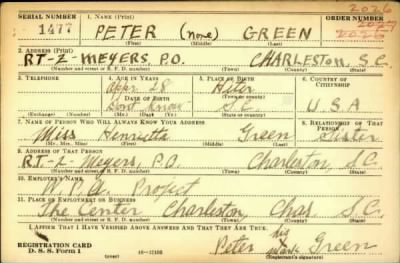 SERIAL NUMBER 1. NAME (Print) ORDER NUMBER
2026
1477 PETER (none) GREEN 2027
2026
(First) (Middle) (Last)
2. ADDRESS (Print)
RT-2-MEYERS, P.O. CHARLESTON, S.C.
(Number and street or R. F. D. number) (Town) (County) (State)
3. TELEPHONE 4. AGE IN YEARS 5. PLACE OF BIRTH 6. COUNTRY OF CITIZENSHIP
Appr 28
DATE OF BIRTH (Town or county)
Dont know S.C. U S A
(Exchange) (Number) (Mo.) (Day) (Yr.) (State or country)
7. NAME OF PERSON WHO WILL ALWAYS KNOW YOUR ADDRESS 8. RELATIONSHIP OF THAT PERSON
Miss Henrietta Green Sister
(Mr., Mrs., Miss) (First) (Middle) (Last)
9. ADDRESS OF THAT PERSON
RT-2-Meyers, P.O. Charleston, S.C.
(Number and street or R. F. D. number) (Town) (County) (State)
10. EMPLOYER'S NAME
W.P.A. Project
11. PLACE OF EMPLOYMENT OR BUSINESS
The Center Charleston, Chas S.C.
(Number and street or R. F. D. number) (Town) (County) (State)
I AFFIRM THAT I HAVE VERIFIED ABOVE ANSWERS AND THAT THEY ARE TRUE.
his
Peter mark Green
REGISTRATION CARD
D. S. S. Form 1 (over) (Registrant's signature)